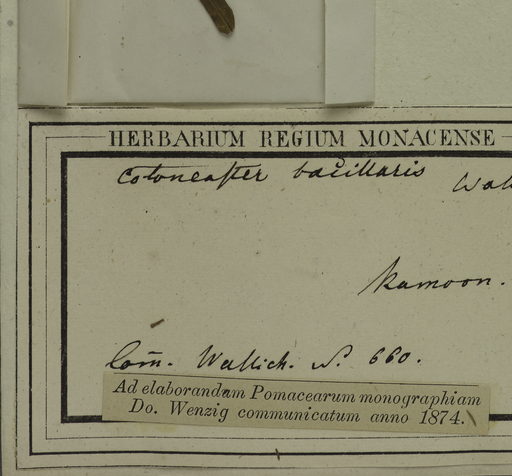 HERBARIUM REGIUM MONACENSE
Cotoneaster bacillaris Wal
Kamoon.
Com̄. Wallich. N. 660.
Ad elaborandum Pomacearum monographiam
Do. Wenzig communicatum anno 1874.